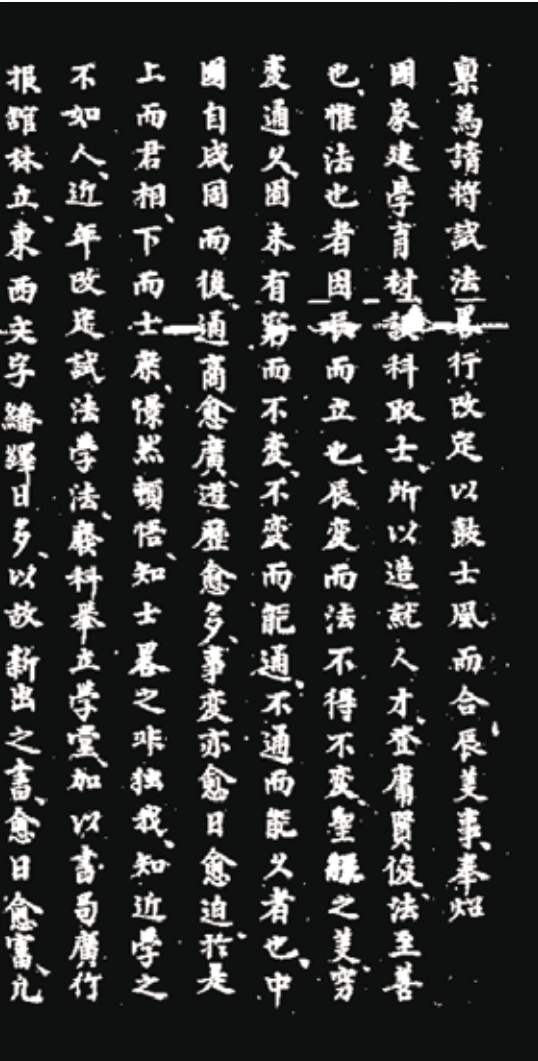 稟為請將試法畧行改定以鼓士風而合辰美事奉炤
國家建學育材設科取士所以造就人才登庸賢俊法至善
也惟法也者因辰而立也辰変而法不得不変聖經之美穷
変通久固未有穷而不変不変而能通不通而能久者也中
國自咸同而後通商愈廣遊歷愈多事変亦愈日愈迫於是
上而君相下而士庶憬然頓悟知士畧之非独我知近學之
不如人近年改定試法学法廢科举立学堂加以書局廣行
报舘林立東西文字繙譯日多以故新出之書愈日愈富凢